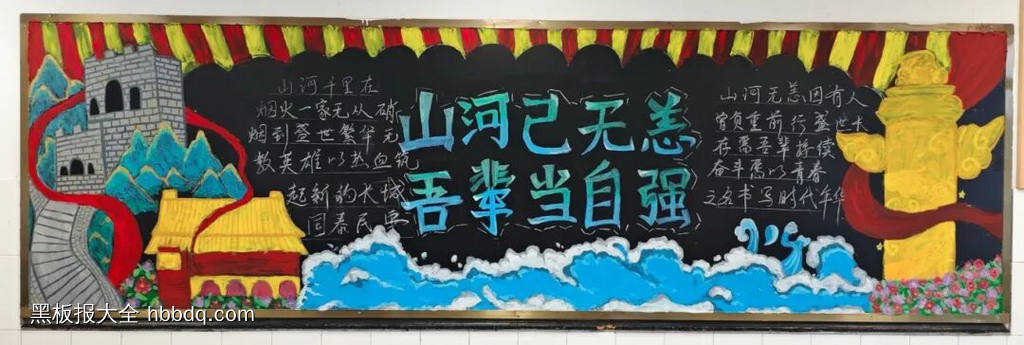 山河千里在
烟火一家无从硝
烟到盛世繁华无
数英雄以热血筑
起新的长城
国泰民安
山河已无恙
吾辈当自强
山河无恙因有人
曾负重前行盛世长
存需吾辈接续
奋斗愿以青春
之名书写时代年华
黑板报大全 hbbdq.com